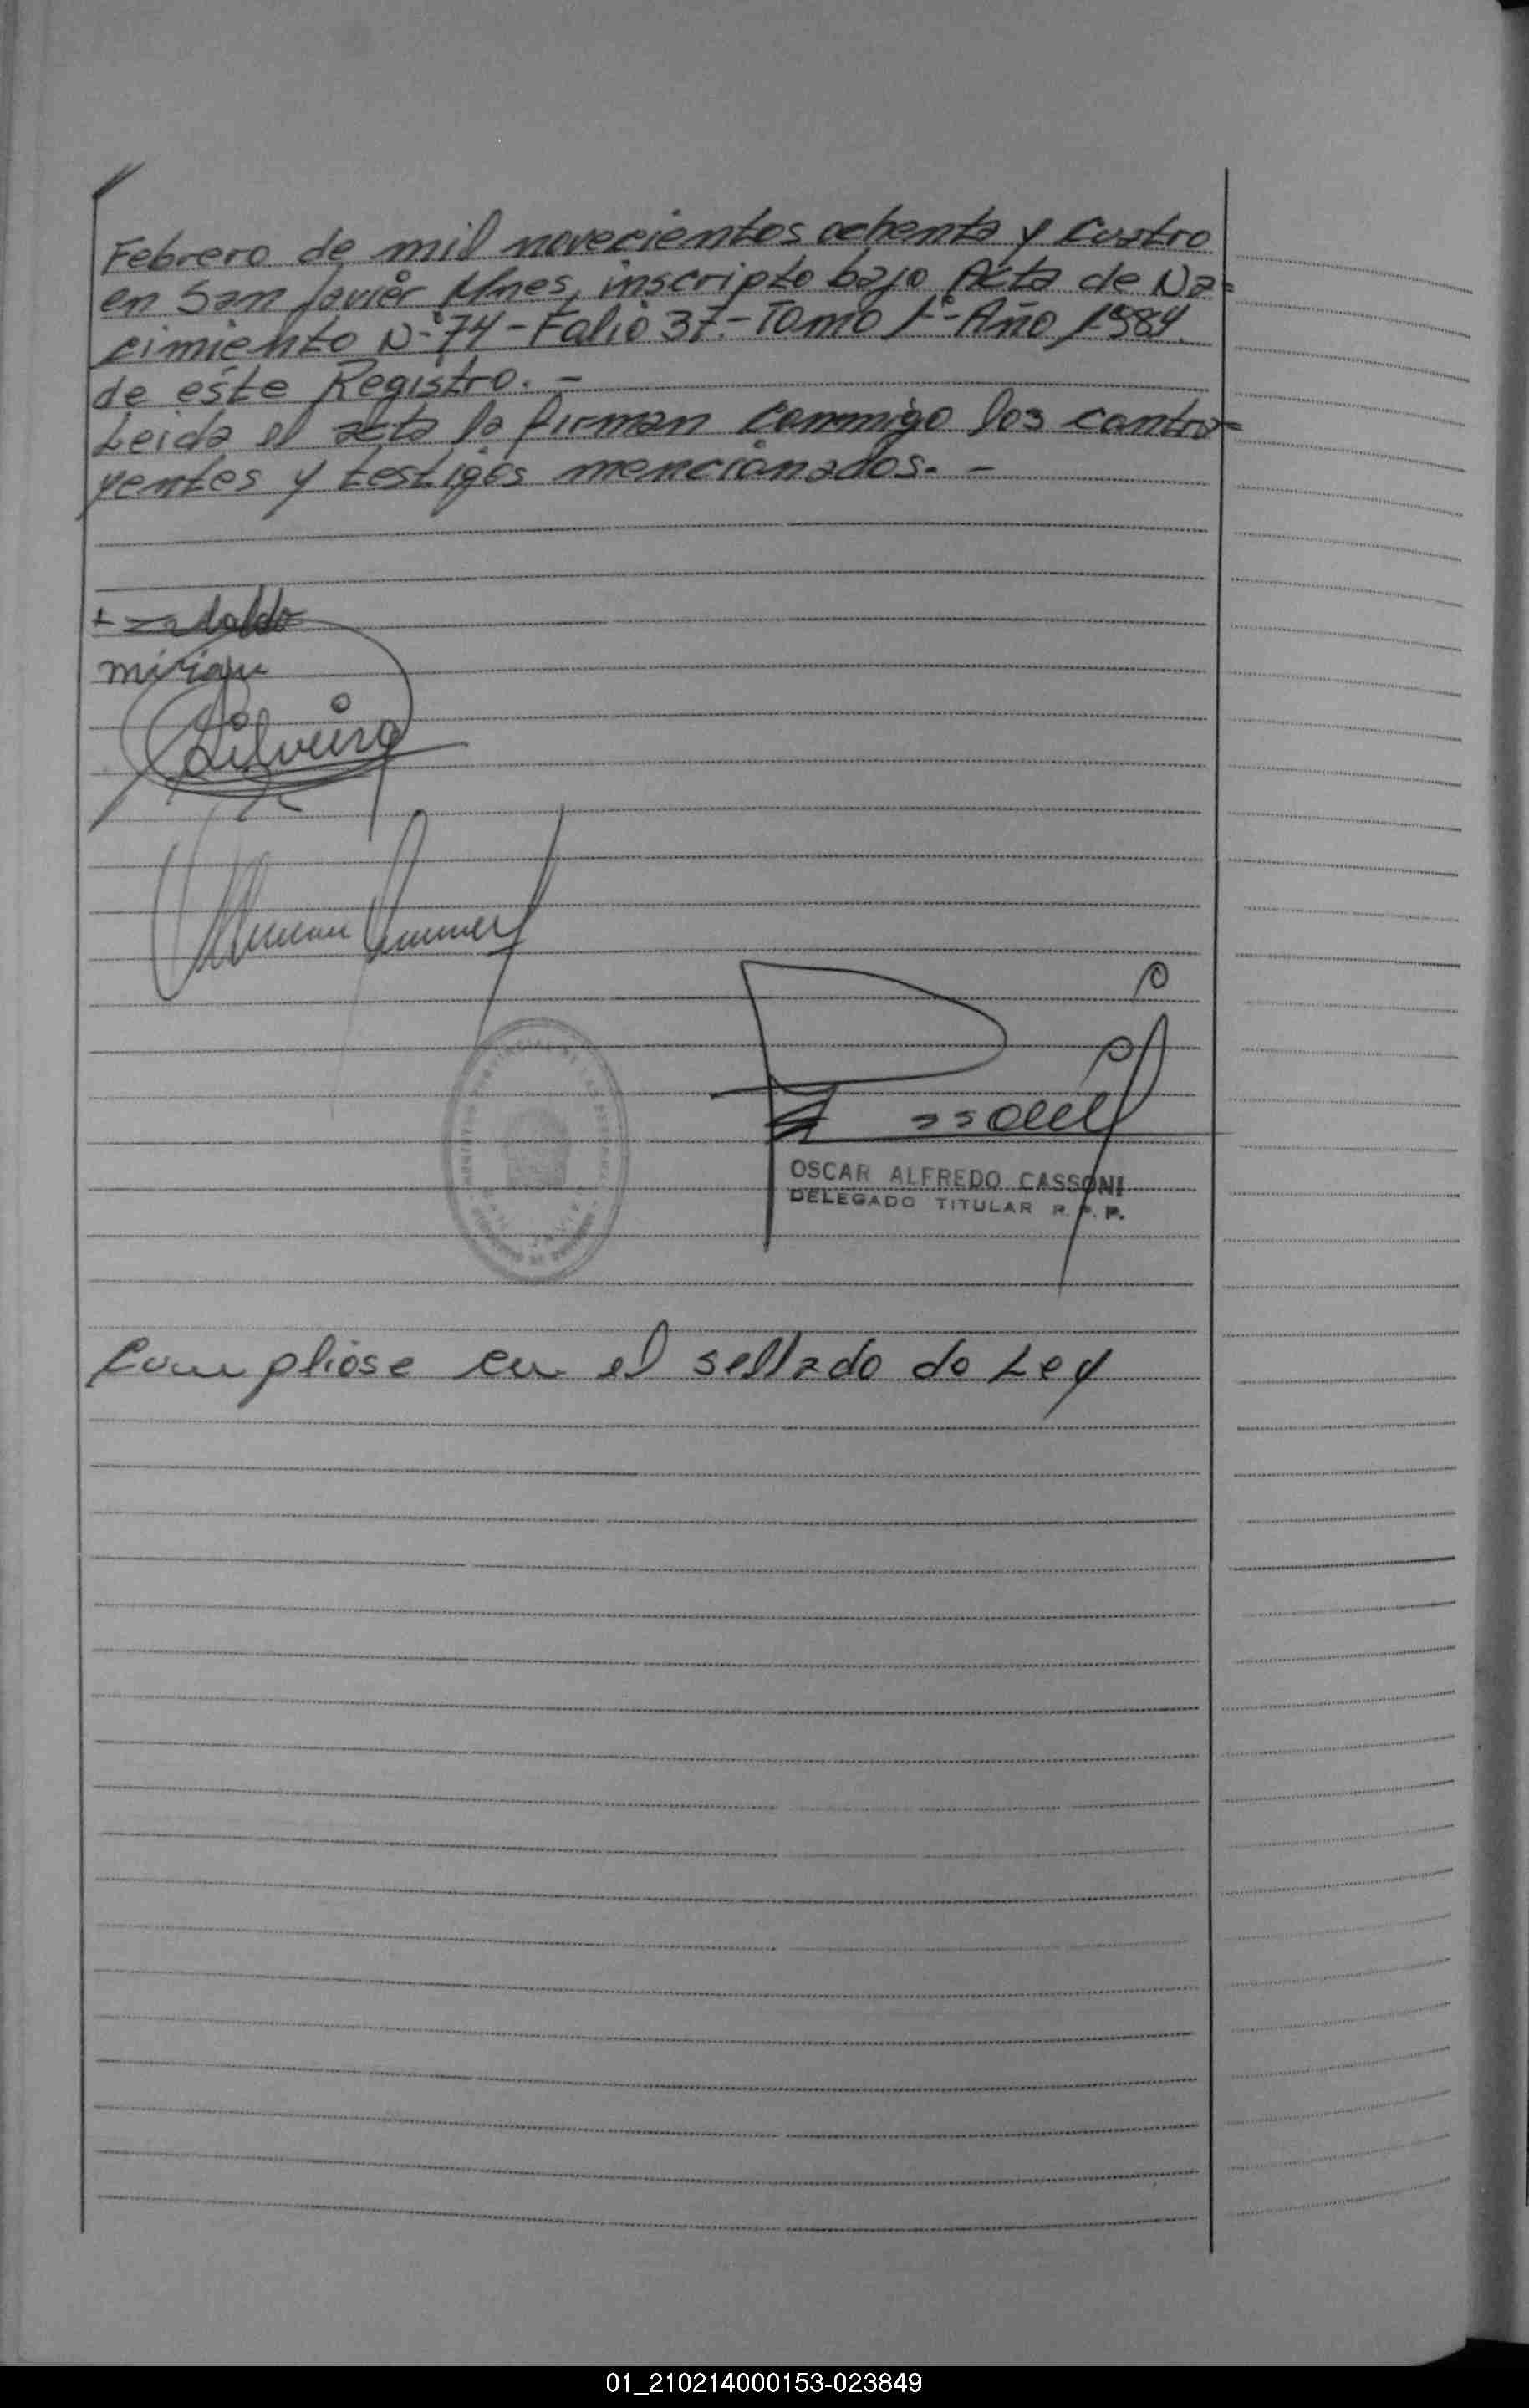 Febrero de mil novecientos ochenta y cuatro
en San Javier Mnes, inscripto bajo Acta de Na=
cimiento N° 74 - Folio 37.- Tomo 1°- Año 1984.
de este Registro. -
Leida el acta la firman conmigo los contra=
yentes y testigos mencionados. -
miriam
Silveira
OSCAR ALFREDO CASSONI
DELEGADO TITULAR R. P. P.
Cumpliose en el sellado de Ley
01_210214000153-023849